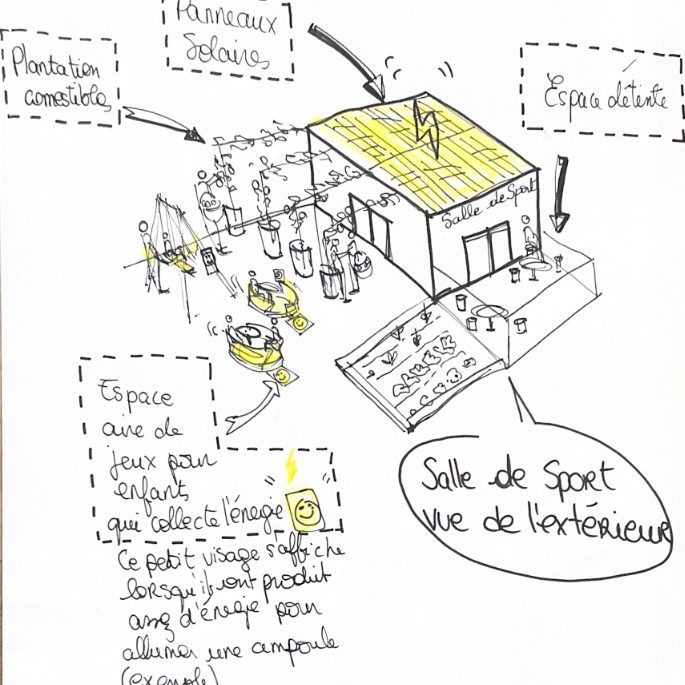 Panneaux
Solaires
Plantation
comestibles
Espace détente
Salle de Sport
Espace
aire de
jeux pour
enfants
qui collecte l'énergie
Salle de Sport
vue de l'extérieur
Ce petit visage s'affiche
lorsqu'ils ont produit
assez d'énergie pour
allumer une ampoule
(exemple)